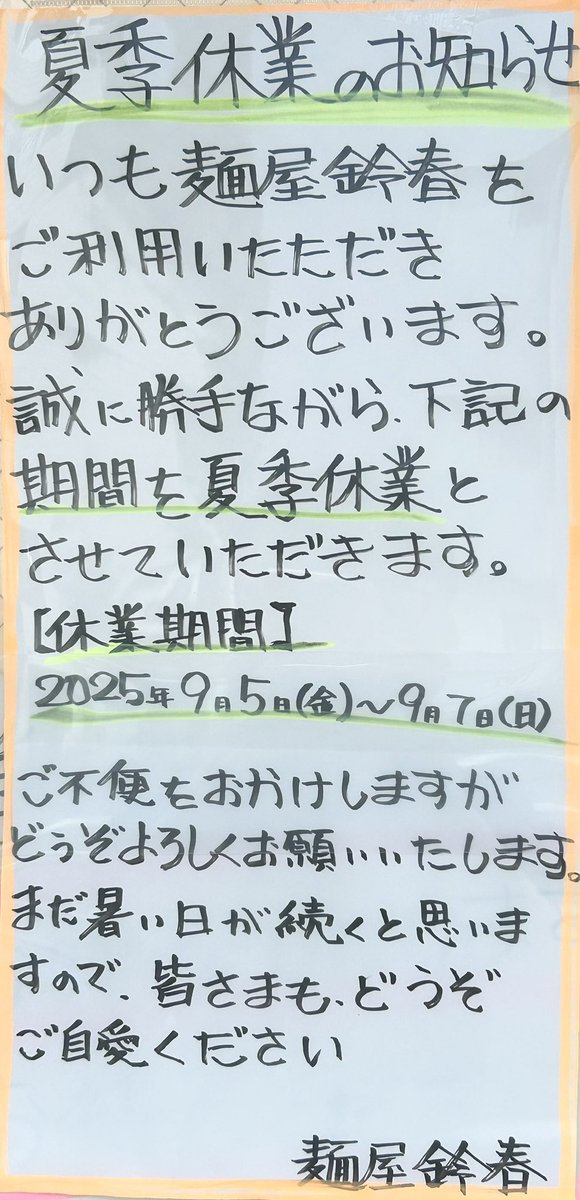 夏季休業のお知らせ
いつも麺屋鈴春を
ご利用いたただき
ありがとうございます。
誠に勝手ながら、下記の
期間を夏季休業と
させていただきます。
[休業期間]
2025年9月5日(金)~9月7日(日)
ご不便をおかけしますが
どうぞよろしくお願いいたします。
まだ暑い日が続くと思いま
すので、皆さまも、どうぞ
ご自愛ください
麺屋鈴春